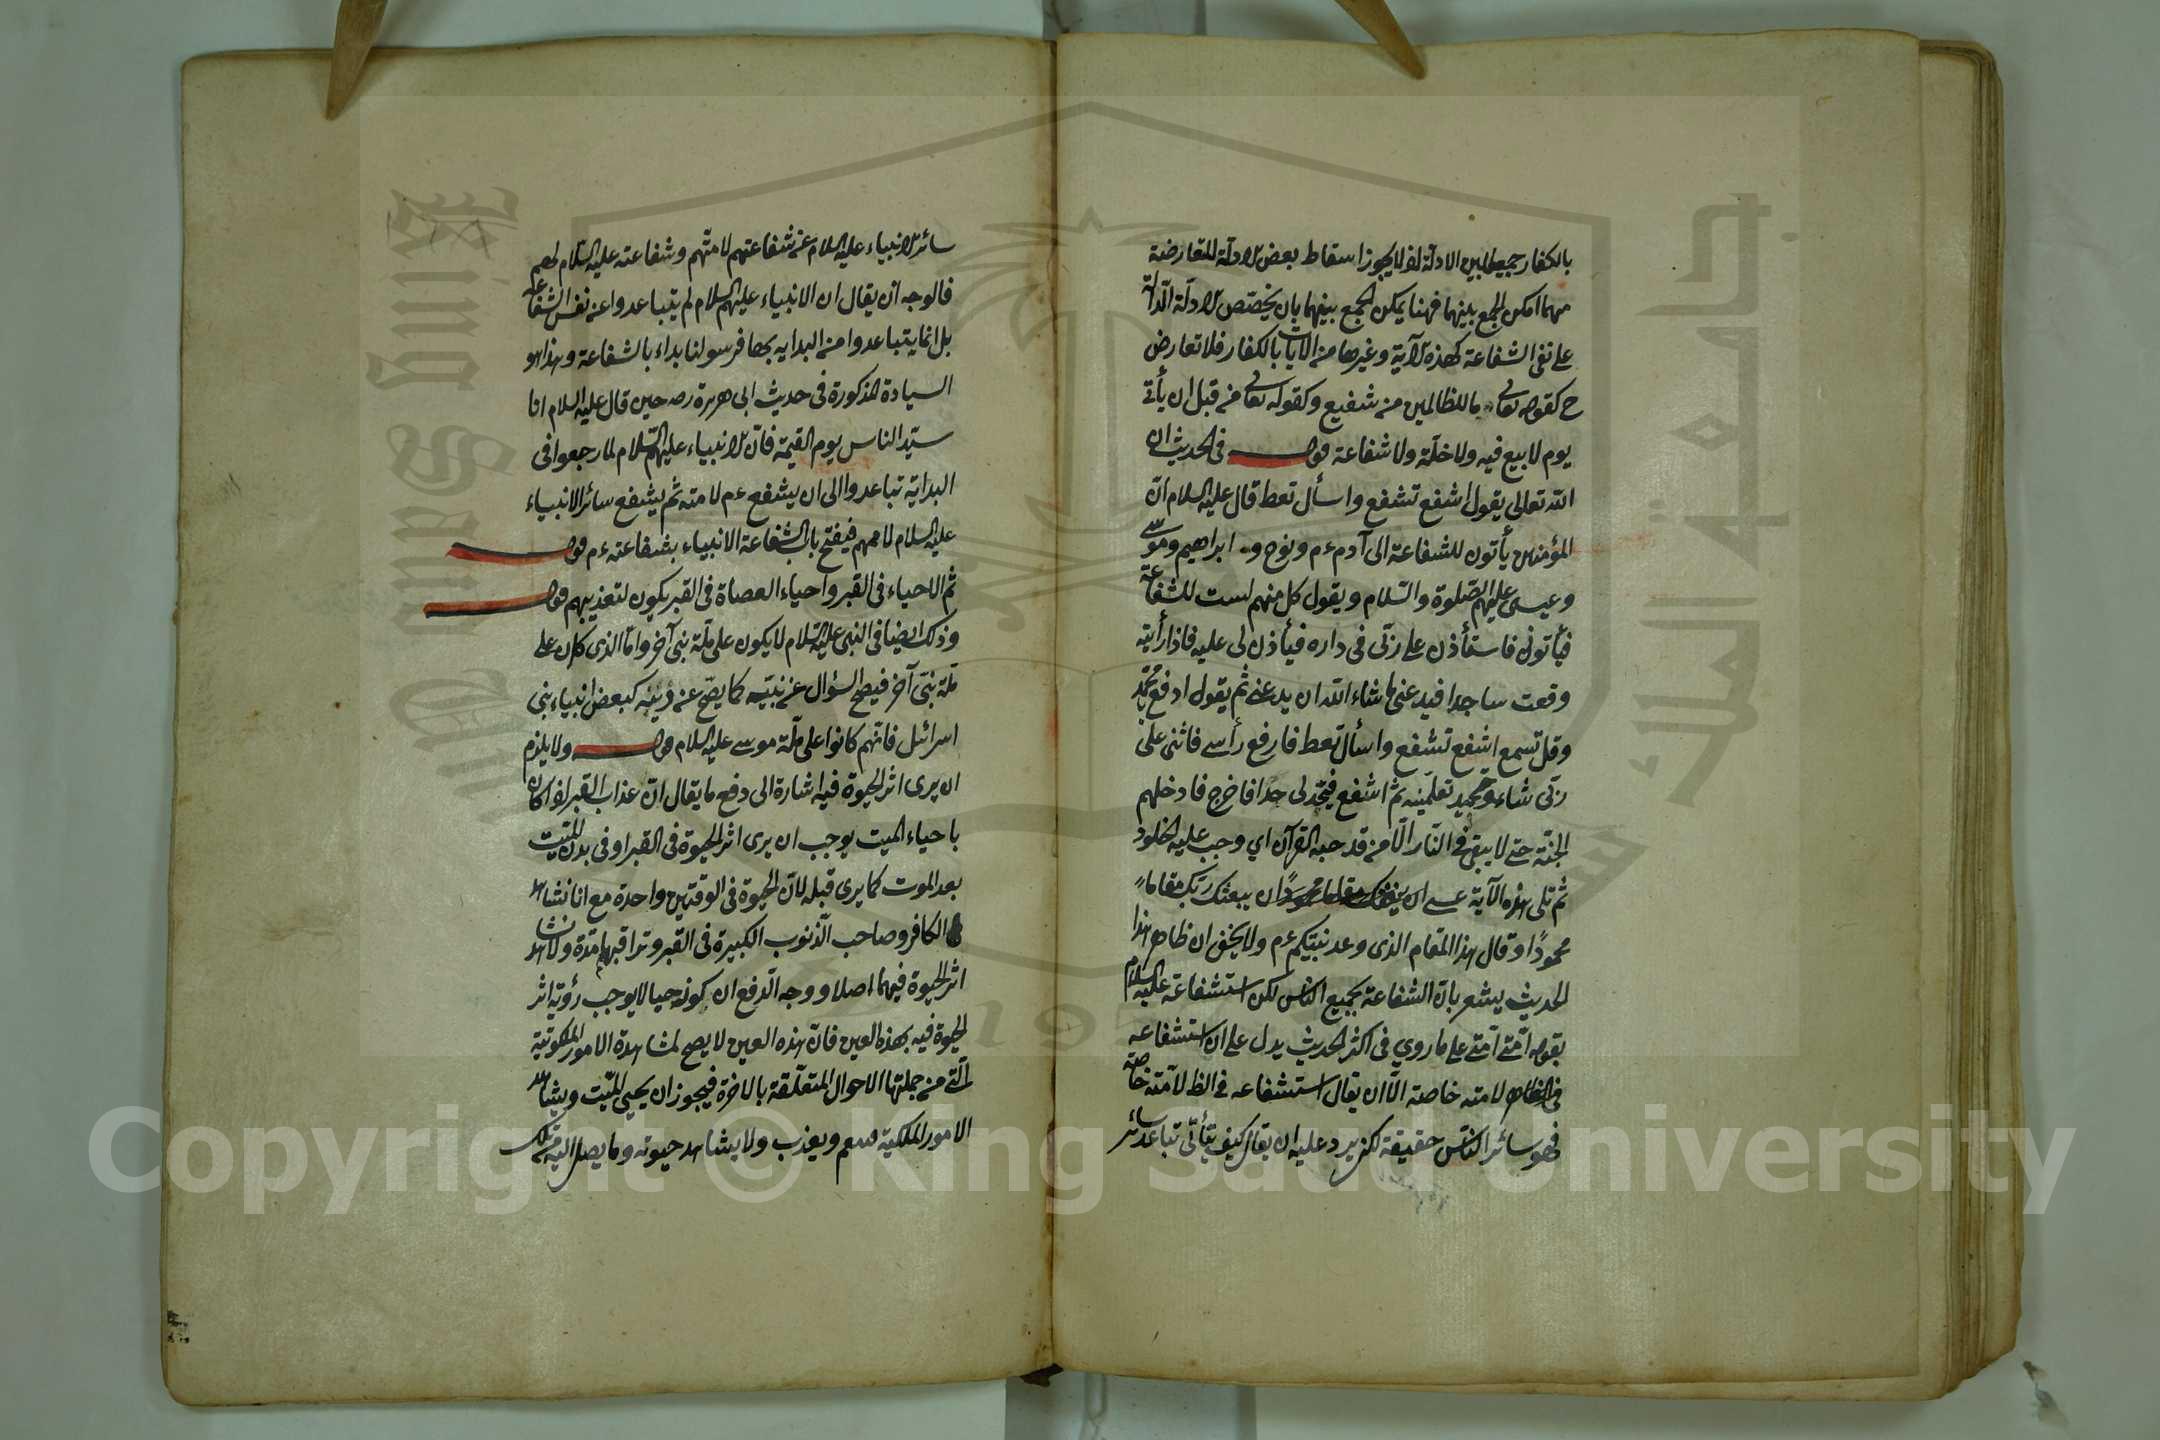 بالكفار جميعا بين الادلة اذ لا يجوز اسقاط بعض الادلة للتعارضة
مهما امكن الجمع بينهما فهنا يمكن الجمع بينهما بان يخصّص الادلّة الدالة
على نفى الشفاعة كهذه الآية وغيرها من الآيات بالكفار فلا تعارض
ح كقوله تعالى ما للظالمين من شفيع وكقوله تعالى من قبل ان يأتى
يوم لا بيع فيه ولا خلّة ولا شفاعة قوله فى الحديث ان
الله تعالى يقول اشفع تشفع واسأل تعط قال عليه السلام ان
المؤمنين يأتون للشفاعة الى آدم ءم ونوح و ابراهيم وموسى
وعيسى عليهم الصلوة والسّلام ويقول كل منهم لست للشفاعة
فيأتونى فاستأذن على ربّى فى داره فيأذن لى عليه فاذا رأيته
وقعت ساجدا فيدعنى ما شاء الله ان يدعنى ثم يقول ارفع محمّد
وقل تسمع اشفع تشفع واسأل تعط فارفع رأسى فاثنى على
ربّى بثناء وتحميد تعلّمنيه ثم اشفع فيحدّ لى حدّا فاخرج فادخلهم
الجنّة حتى لا يبقى فى النّار الّا من قد حبسه القرآن اي وجب عليه الخلود
ثم تلى هذه الآية عسى ان يبعثك ربّك مقاماً
محمودًا وقال هذا المقام الذى وعد نبيّكم ءم ولا يخفى ان ظاهر هذا
الحديث يشعر بانّ الشفاعة بجميع الناس لكن استشفاعة عليه السلام
بقوله امّتى امّتى على ما روي فى اكثر الحديث يدل على ان استشفاعه
فى الظاهر لامته خاصة الّا ان يقال استشفاعه فى الظ لامّته خاصة
فهو سائر الناس حقيقة لكن يرد عليه ان يقال كيف يتأتّى تباعد سائر
سائر الانبياء عليه السلام عن شفاعتهم لامّتهم وشفاعته عليه السّلام لهم
فالوجه ان يقال ان الانبياء عليهم السلام لم يتباعدوا عن نفس الشفاعة
بل انما يتباعدوا من البداية بها فرسولنا بداء بالشفاعة وهذا هو
السيادة المذكورة فى حديث ابى هريرة رضه حين قال عليه السلام انا
سيّد الناس يوم القيمة فانّ الانبياء عليهم السّلام لما رجعوا فى
البداية تباعدوا الى ان يشفع ءم لامته ثم يشفع سائر الانبياء
عليه السلام لاممهم فيفتح باب الشفاعة الانبياء بشفاعته ءم قوله
ثم الاحياء فى القبر واحياء العصاة فى القبر يكون لتعذيبهم قوله
وذلك ايضا فى النبى عليه السّلام لا يكون على ملّة نبى آخر وامّا الذى كان على
ملّة نبىّ آخر فيصح السؤال عن نبيّه كما يصحّ عن دينه كبعض انبياء بنى
اسرائل فانّهم كانوا على ملّة موسى عليه السلام قوله ولا يلزم
ان يرى اثر الحيوة فيه اشارة الى دفع ما يقال انّ عذاب القبر اذا كان
باحياء الميت يوجب ان يرى اثر الحيوة فى القبر او فى بدن الميّت
بعد الموت كما يرى قبله لانّ الحيوة فى الوقتين واحدة مع انا نشاهد
الكافر وصاحب الذّنوب الكبيرة فى القبر ونراقبهما مدّة ولا نشاهد
اثر الحيوة فيهما اصلا ووجه الدّفع ان كونه حيا لا يوجب رؤية اثر
الحيوة فيه بهذه العين فانّ هذه العين لا يصح لمشاهدة الامور الملكوتية
الّتى من جملتها الاحوال المتعلّقة بالاخرة فيجوز ان يحيى الميّت ويشاهد
الامور الملكية وينعم ويعذب ولا يشاهد حيوته وما يصل اليه من تلك
Copyright © King Saud University
جامعة الملك سعود
King Saud University
1957